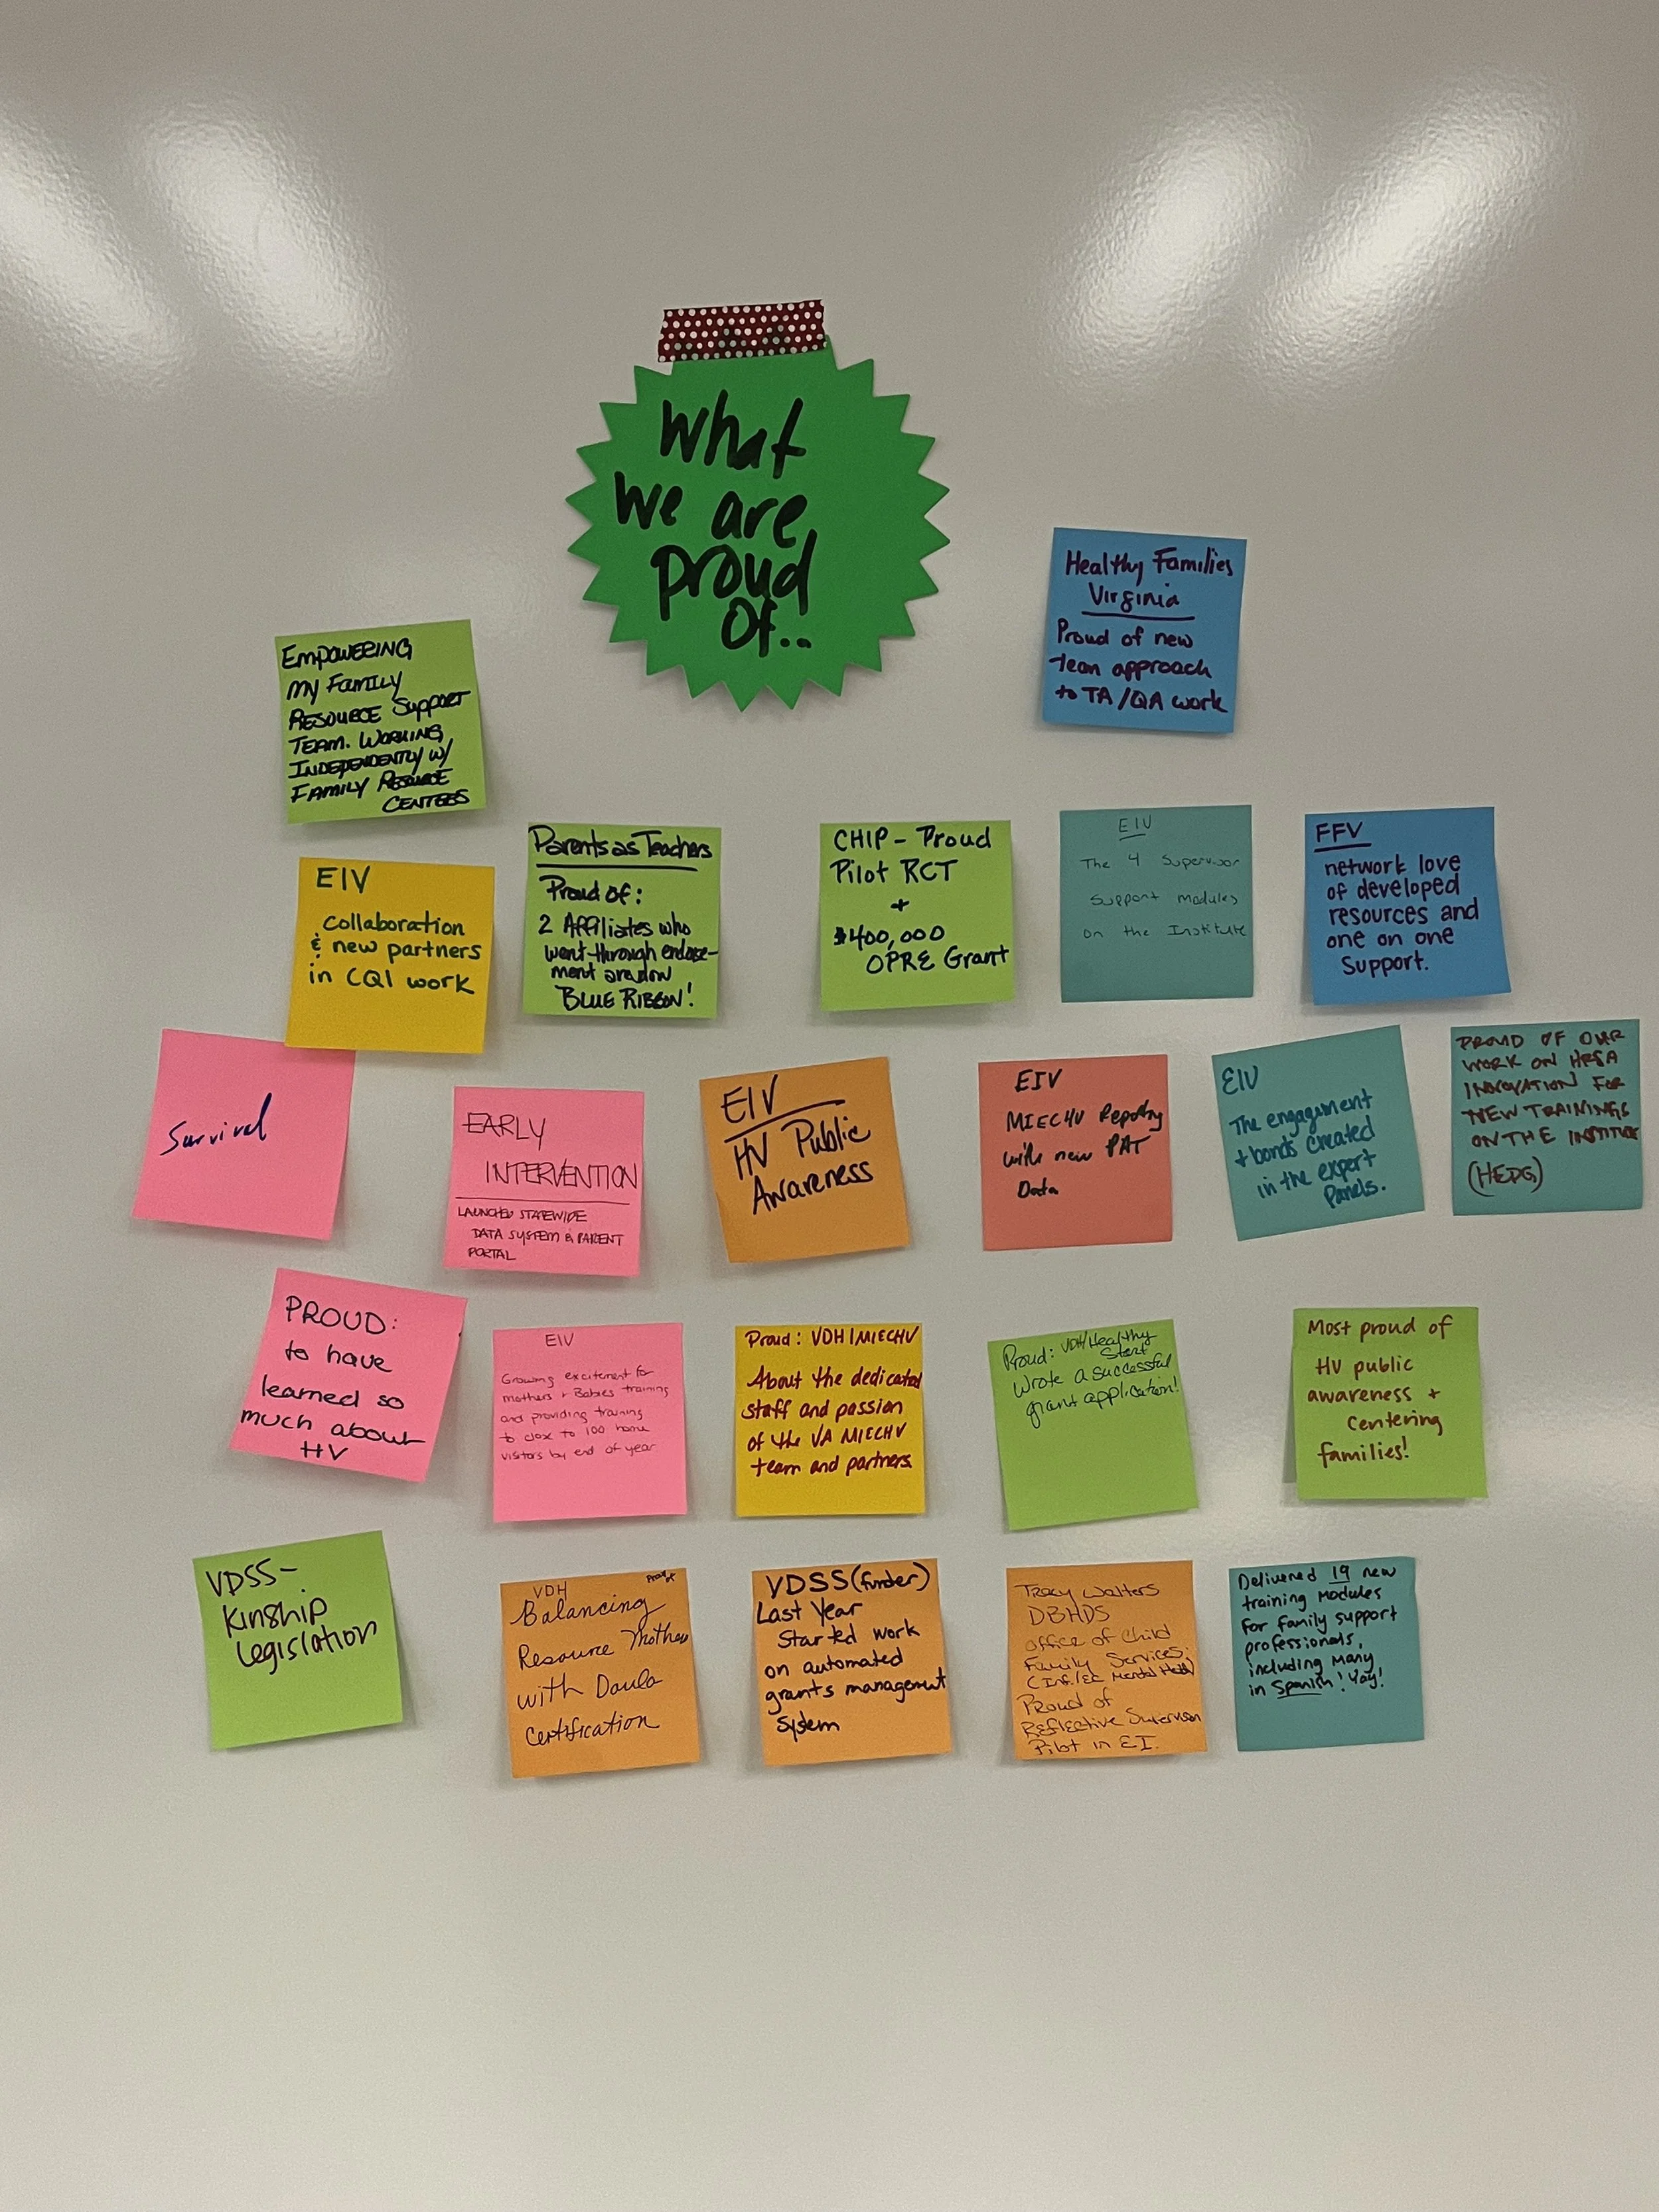 What
we are
proud
Of...
Healthy Families
Virginia
Proud of new
team approach
to TA/QA work
EMPOWERING
MY FAMILY
RESOURCE SUPPORT
TEAM. WORKING
INDEPENDENTLY W/
FAMILY RESOURCE
CENTERS
EIV
collaboration
& new partners
in CQI work
Parents as Teachers
Proud of:
2 Affiliates who
went through endorse-
ment are now
BLUE RIBBON!
CHIP - Proud
Pilot RCT
+
$400,000
OPRE Grant
EIV
The 4 Supervisor
Support modules
on the Institute
FFV
network love
of developed
resources and
one on one
support.
Survival
EARLY
INTERVENTION
LAUNCHED STATEWIDE
DATA SYSTEM & PARENT
PORTAL
EIV
HV Public
Awareness
EIV
MIECHV Reporting
with new PAT
Data
EIV
The engagement
+ bonds created
in the expert
panels.
PROUD OF OUR
WORK ON HRSA
INNOVATION FOR
NEW TRAININGS
ON THE INSTITUTE
(HEDG)
PROUD:
to have
learned so
much about
HV
EIV
Growing excitement for
mothers + Babies training
and providing training
to close to 100 home
visitors by end of year
Proud: VDH/MIECHV
About the dedicated
staff and passion
of the VA MIECHV
team and partners.
Proud: VDH/Healthy
Start
Wrote a successful
grant application!
Most proud of
HV public
awareness +
Centering
families!
VDSS-
Kinship
Legislation
VDH Proud of
Balancing
Resource Mothers
with Doula
Certification
VDSS (funder)
Last Year
Started work
on automated
grants management
System
Tracy Walters
DBHDS
Office of Child
Family Services.
(Inf./EC Mental Health)
Proud of
Reflective Supervision
Pilot in EI.
Delivered 19 new
training modules
for family support
professionals,
including many
in Spanish! Yay!